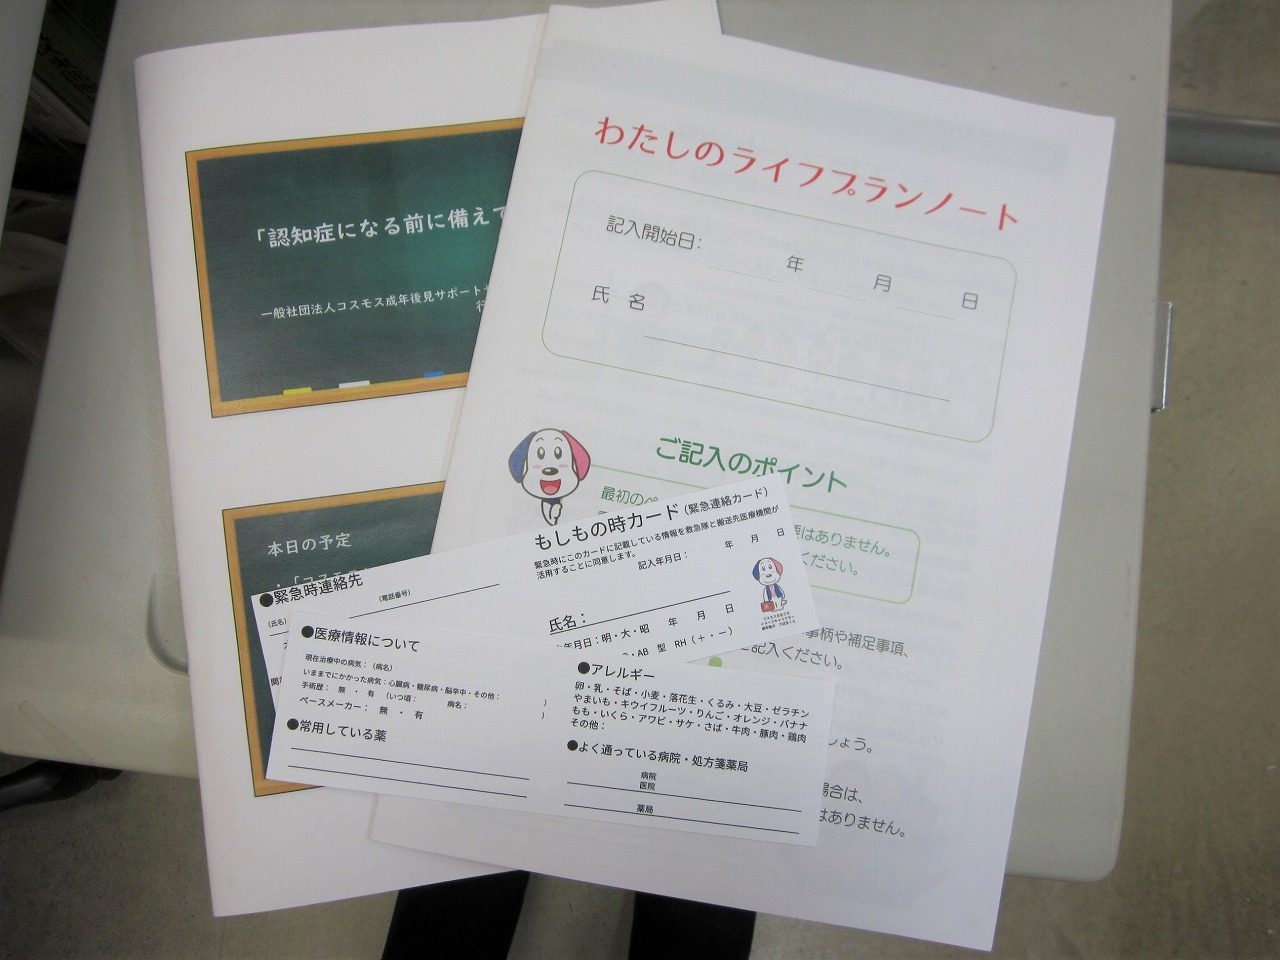 「認知症になる前に備えて
一般社団法人コスモス成年後見サポート
行
本日の予定
わたしのライフプランノート
記入開始日: 年 月 日
氏 名
ご記入のポイント
最初のペ
要はありません。
ください。
事柄や補足事項、
ご記入ください。
しょう。
場合は、
はありません。
もしもの時カード(緊急連絡カード)
緊急時にこのカードに記載している情報を救急隊と搬送先医療機関が
活用することに同意します。
記入年月日: 年 月 日
氏名:
年月日:明・大・昭 年 月 日
・AB 型 RH(+・-)
●緊急時連絡先
(氏名)
(電話番号)
●医療情報について
現在治療中の病気:(病名)
いままでにかかった病気:心臓病・糖尿病・脳卒中・その他:
手術歴: 無 ・ 有 (いつ頃: 病名: )
ペースメーカー: 無 ・ 有 )
●常用している薬
●アレルギー
卵・乳・そば・小麦・落花生・くるみ・大豆・ゼラチン
やまいも・キウイフルーツ・りんご・オレンジ・バナナ
もも・いくら・アワビ・サケ・さば・牛肉・豚肉・鶏肉
その他:
●よく通っている病院・処方箋薬局
病院
医院
薬局